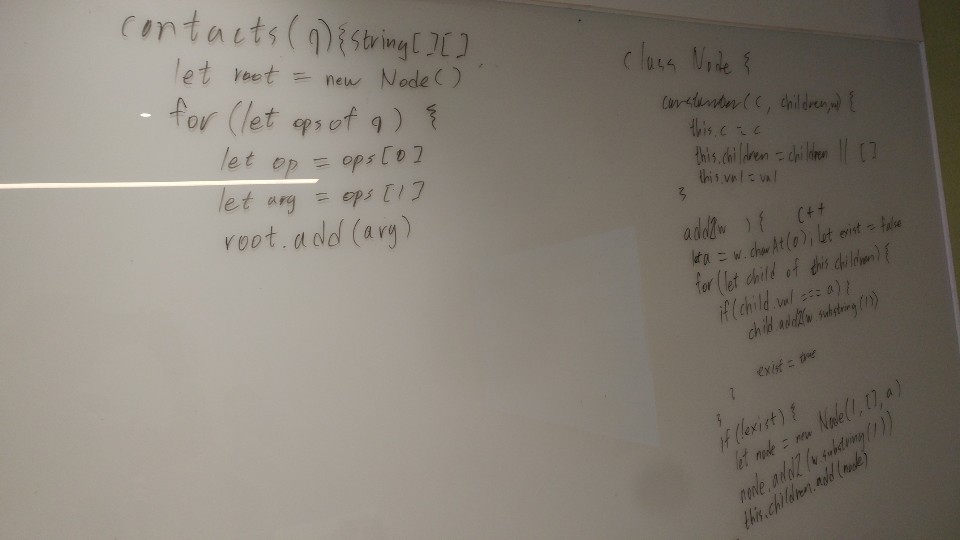 contacts(q){string[][]
let root = new Node()
for (let ops of q) {
let op = ops[0]
let arg = ops[1]
root.add(arg)
class Node {
constructor(c, children, val) {
this.c = c
this.children = children || []
this.val = val
}
add2(w ) { c++
let a = w.charAt(0); let exist = false
for (let child of this.children) {
if (child.val === a) {
child.add2(w.substring(1))
exist = true
}
}
if (!exist) {
let node = new Node(1, [], a)
node.add2(w.substring(1))
this.children.add(node)